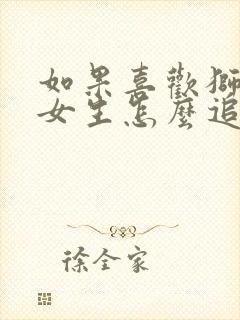 如果喜歡獅
女生怎麼追
徐全家